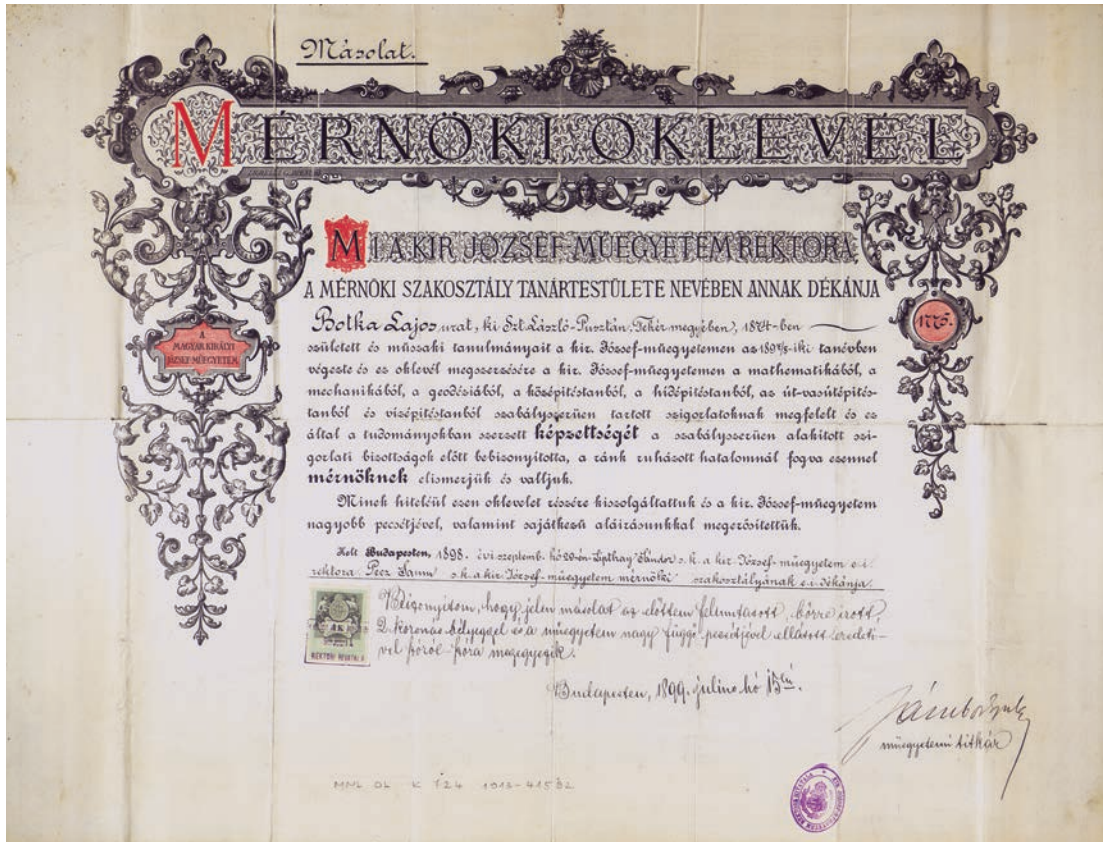 Másolat.
MÉRNÖKI OKLEVÉL
MI, A KIR. JÓZSEF-MŰEGYETEM REKTORA,
A MÉRNÖKI SZAKOSZTÁLY TANÁRTESTÜLETE NEVÉBEN ANNAK DÉKÁNJA
A
MAGYAR KIRÁLYI
JÓZSEF-MŰEGYETEM
1775.
Botka Lajos urat, ki Szt. László-Pusztán, Fehér megyében, 1874-ben
született és műszaki tanulmányait a kir. József-műegyetemen az 1897/8-iki tanévben
végezte és ez oklevél megszerzésére a kir. József-műegyetemen a mathematikából, a
mechanikából, a geodésiából, a középítéstanból, a hídépítéstanból, az út-vasútépítés-
tanból és vízépítéstanból szabályszerűen tartott szigorlatoknak megfelelt és ez
által a tudományokban szerzett képzettségét a szabályszerűen alakított szi-
gorlati bizottságok előtt bebizonyította, a ránk ruházott hatalomnál fogva ezennel
mérnöknek elismerjük és valljuk.
Minek hiteléül ezen oklevelet részére kiszolgáltattuk és a kir. József-műegyetem
nagyobb pecsétjével, valamint sajátkezű aláírásunkkal megerősítettük.
Kelt Budapesten, 1898. évi szeptemb. hó 29-én Lipthay Sándor s. k. a kir. József-műegyetem e. i.
rektora. Pecz Samu s. k. a kir. József-műegyetem mérnöki szakosztályának e. i. dékánja.
Bizonyítom, hogy jelen másolat az előttem felmutatott, bőrre írott,
2 koronás bélyeggel és a műegyetem nagy függő pecsétjével ellátott eredeti-
vel szóról szóra megegyezik.
REKTORI HIVATALA
Budapesten, 1899. julius hó 15én.
műegyetemi titkár
MNL OL K 124 1913-41532